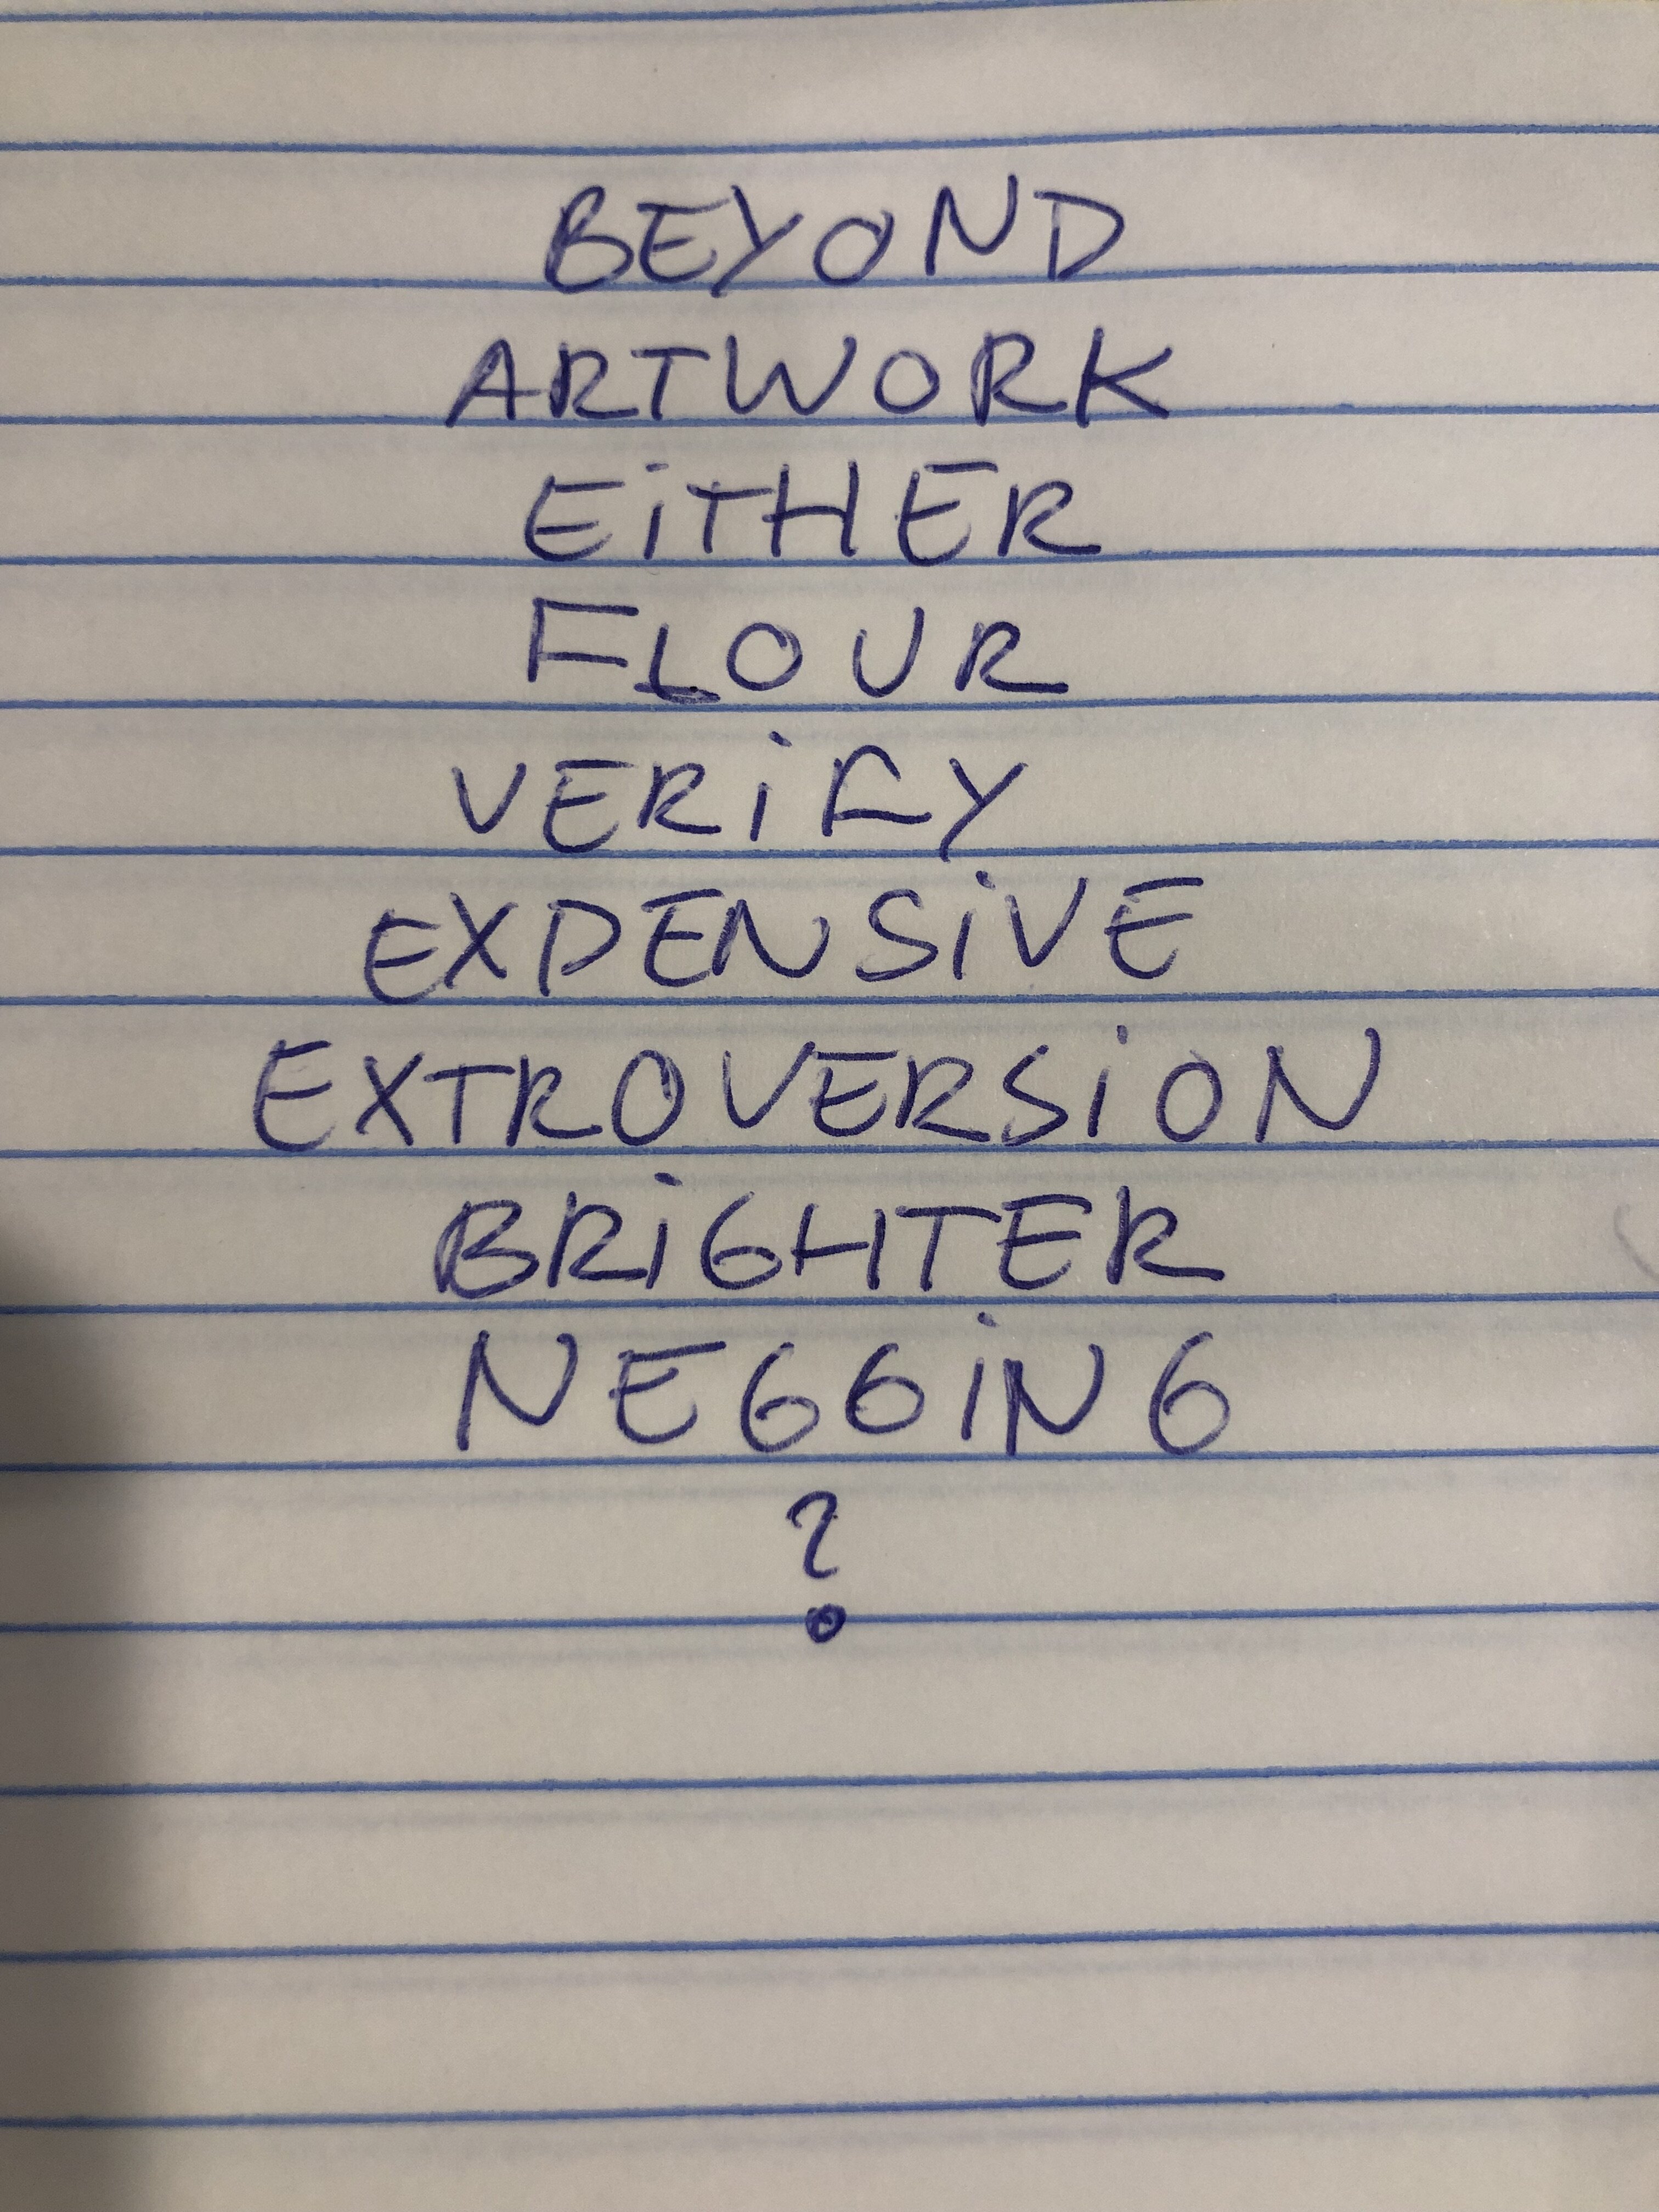 BEYOND
ARTWORK
EiTHER
FLOUR
VERiFY
EXPENSiVE
EXTROVERSiON
BRiGHTER
NEGGiNG
?